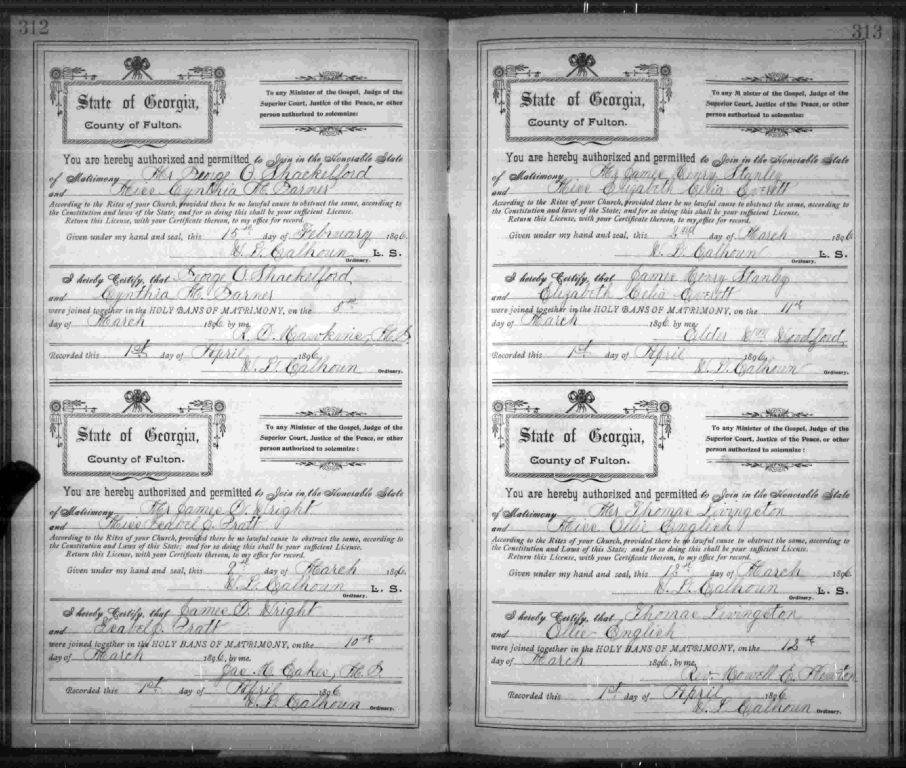 312
State of Georgia,
County of Fulton.
To any Minister of the Gospel, Judge of the
Superior Court, Justice of the Peace, or other
person authorized to solemnize:
You are hereby authorized and permitted to Join in the Honorable State
of Matrimony Mr George O. Shackelford
and Miss Cynthia H. Barner
According to the Rites of your Church, provided there be no lawful cause to obstruct the same, according to
the Constitution and laws of the State; and for so doing this shall be your sufficient License.
Return this License, with your Certificate thereon, to my office for record.
Given under my hand and seal, this 15th day of February 1896
W. L. Calhoun L. S.
Ordinary.
I hereby Certify, that George O. Shackelford
and Cynthia H. Barner
were joined together in the HOLY BANS OF MATRIMONY, on the 5th
day of March 1896 by me,
Hawkins,
Recorded this 1st day of April 1896
W. L. Calhoun Ordinary.
State of Georgia,
County of Fulton.
To any Minister of the Gospel, Judge of the
Superior Court, Justice of the Peace, or other
person authorized to solemnize:
You are hereby authorized and permitted to Join in the Honorable State
of Matrimony Mr James Wright
and Miss Pratt
According to the Rites of your Church, provided there be no lawful cause to obstruct the same, according to
the Constitution and Laws of this State; and for so doing this shall be your sufficient License.
Return this License, with your Certificate thereon, to my office for record.
Given under my hand and seal, this day of March 1896
W. L. Calhoun L. S.
Ordinary.
I hereby Certify, that James Wright
and Pratt
were joined together in the HOLY BANS OF MATRIMONY, on the 10th
day of March 1896, by me,
Jas. M.
Recorded this 1st day of April 1896
W. L. Calhoun Ordinary.
313
State of Georgia,
County of Fulton.
To any Minister of the Gospel, Judge of the
Superior Court, Justice of the Peace, or other
person authorized to solemnize:
You are hereby authorized and permitted to Join in the Honorable State
of Matrimony Mr James Henry Stanley
and Miss Elizabeth Celia Everett
According to the Rites of your Church, provided there be no lawful cause to obstruct the same, according to
the Constitution and laws of the State; and for so doing this shall be your sufficient License.
Return this License, with your Certificate thereon, to my office for record.
Given under my hand and seal, this 2nd day of March 1896
W. L. Calhoun L. S.
Ordinary.
I hereby Certify, that James Henry Stanley
and Elizabeth Celia Everett
were joined together in the HOLY BANS OF MATRIMONY, on the 11th
day of March 1896 by me,
Elder Wm Woodford,
Recorded this 1st day of April 1896,
W. L. Calhoun Ordinary.
State of Georgia,
County of Fulton.
To any Minister of the Gospel, Judge of the
Superior Court, Justice of the Peace, or other
person authorized to solemnize:
You are hereby authorized and permitted to Join in the Honorable State
of Matrimony Mr Thomas Livingston
and Miss Ellie English
According to the Rites of your Church, provided there be no lawful cause to obstruct the same, according to
the Constitution and Laws of this State; and for so doing this shall be your sufficient License.
Return this License, with your Certificate thereon, to my office for record.
Given under my hand and seal, this 12th day of March 1896
W. L. Calhoun L. S.
Ordinary.
I hereby Certify, that Thomas Livingston
and Ellie English
were joined together in the HOLY BANS OF MATRIMONY, on the 12th
day of March 1896, by me,
Rev. Howell E.
Recorded this 1st day of April 1896
W. L. Calhoun Ordinary.